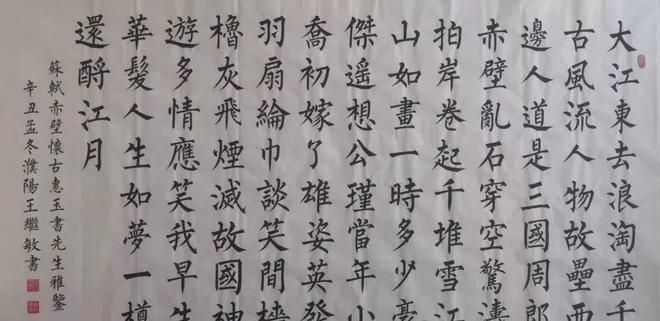 大江東去浪淘盡千
古風流人物故壘西
邊人道是三國周郎
赤壁亂石穿空驚濤
拍岸卷起千堆雪江
山如畫一時多少豪
傑遥想公瑾當年小
喬初嫁了雄姿英發
羽扇綸巾談笑間檣
櫓灰飛煙滅故國神
遊多情應笑我早生
華髮人生如夢一樽
還酹江月
蘇軾赤壁懷古惠玉書先生雅鑒
辛丑孟冬濮陽王繼敏書